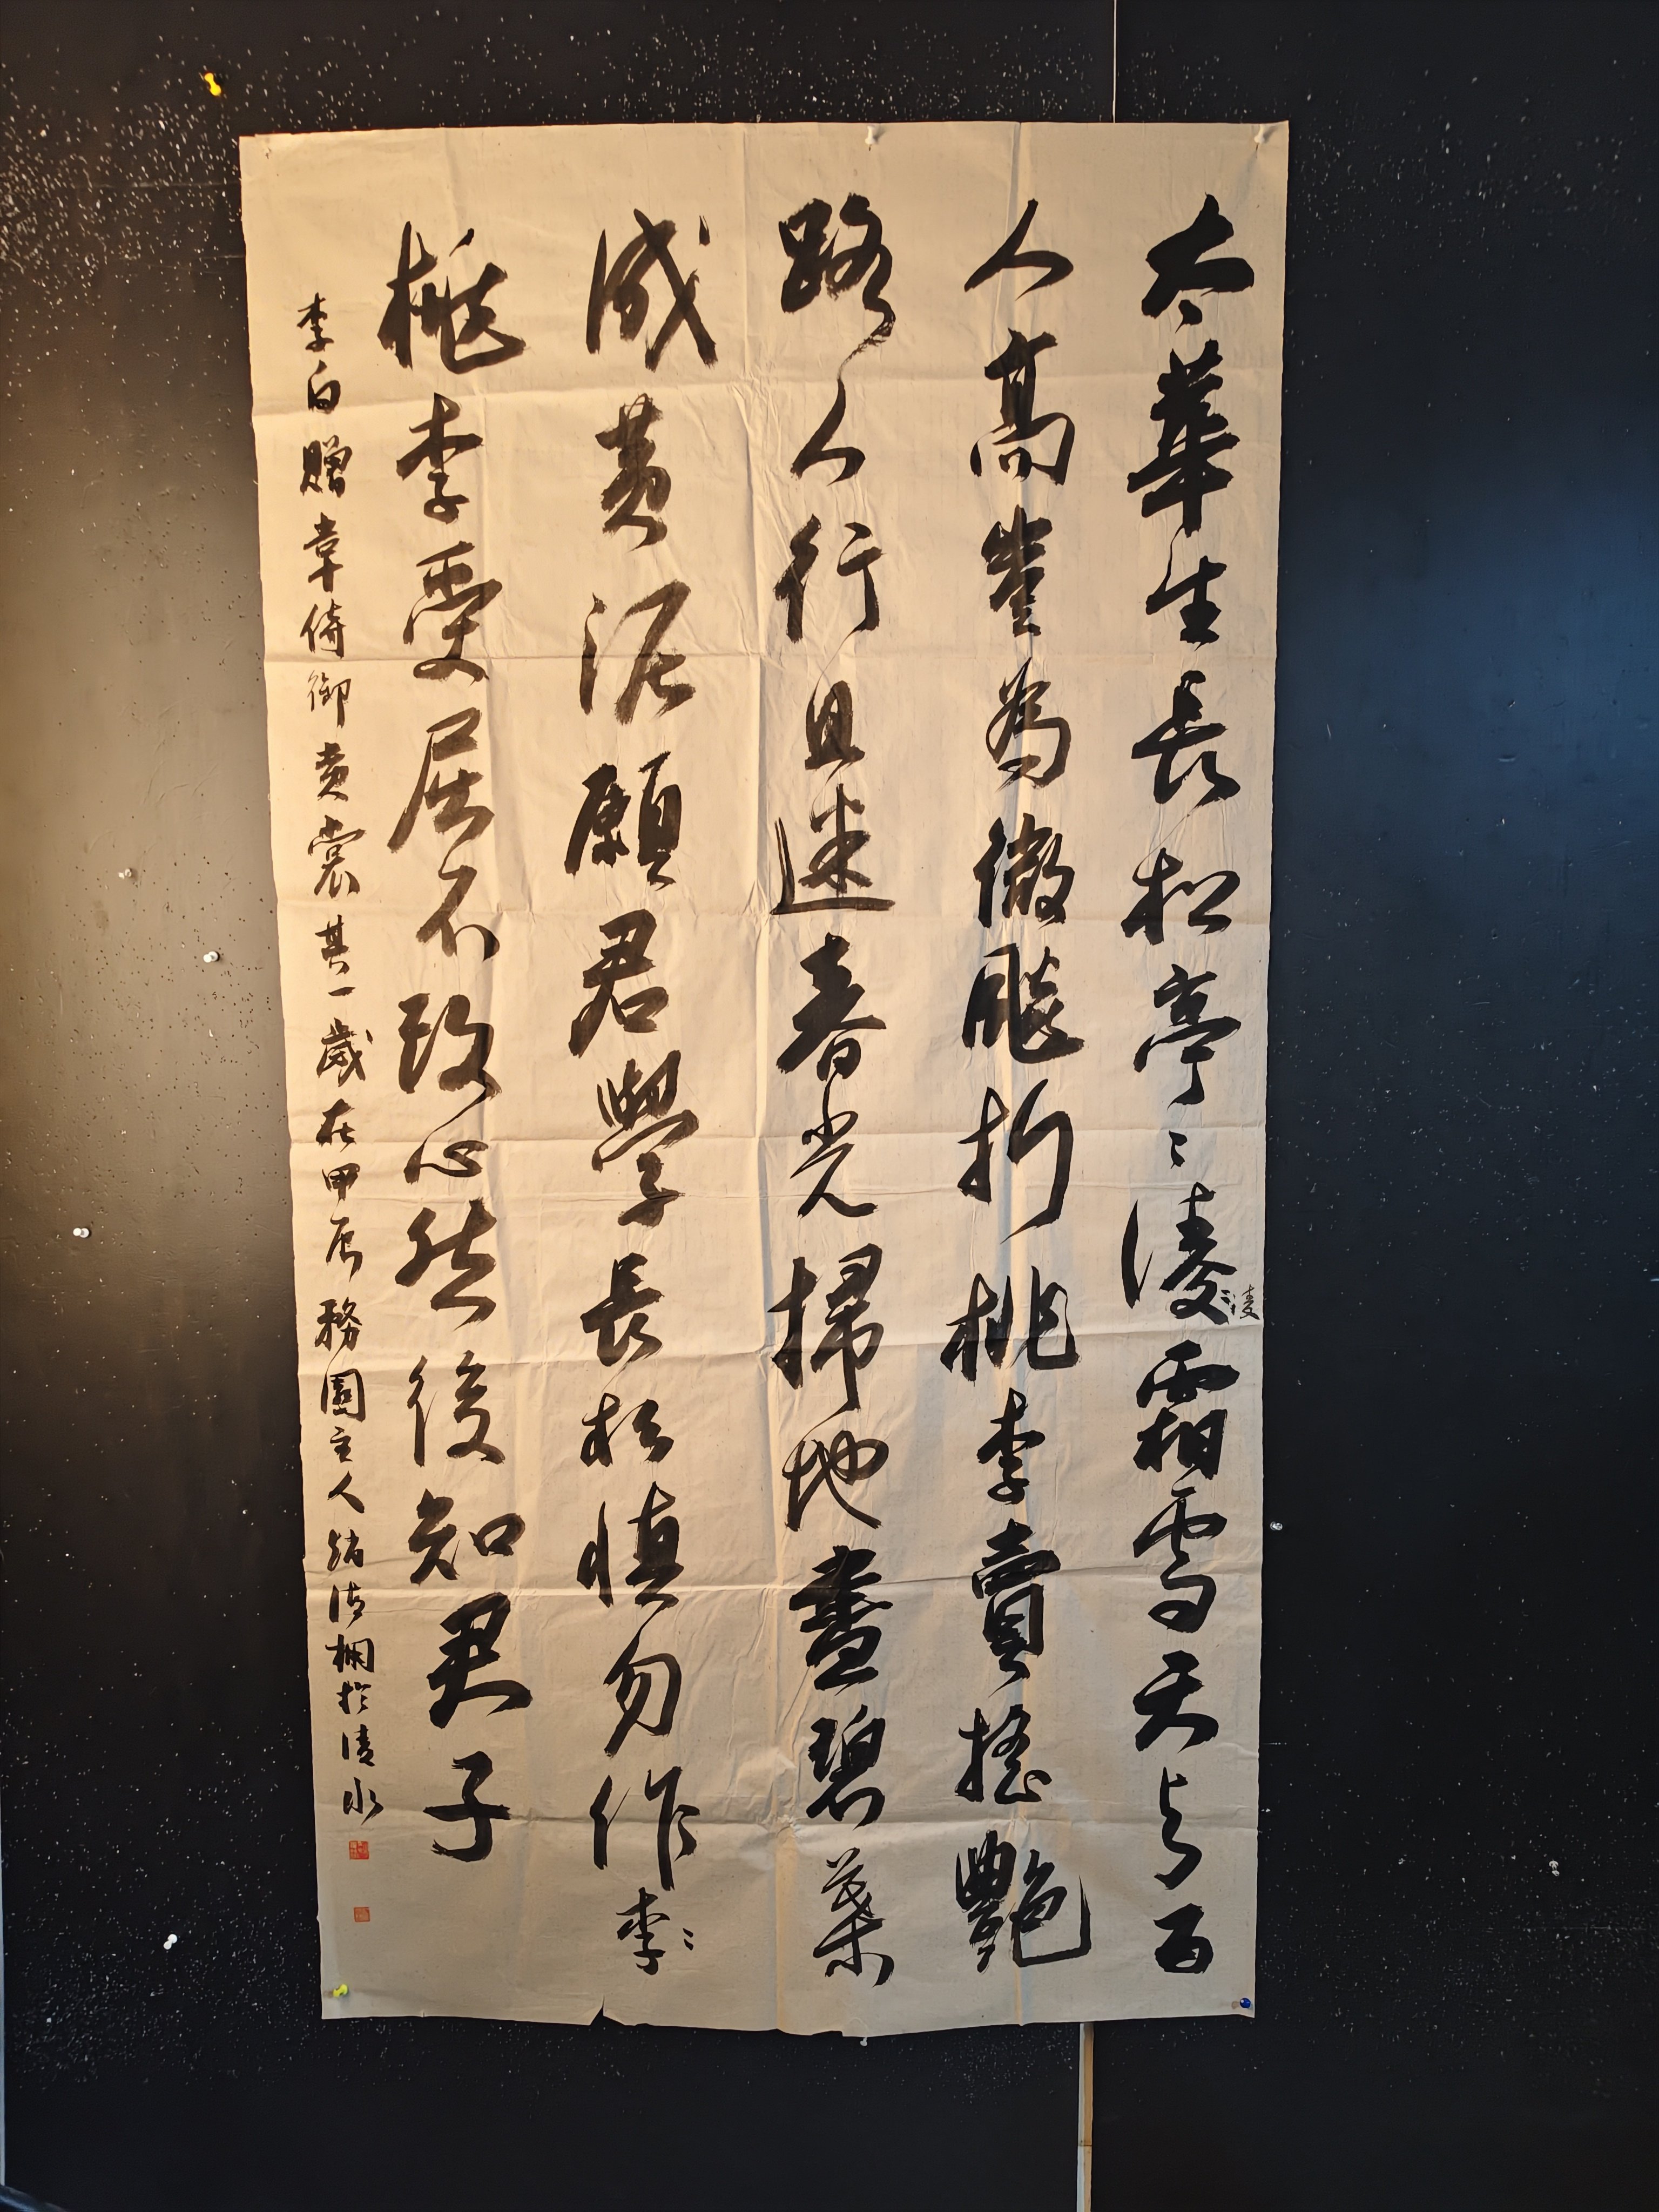 太華生長松亭〻淩霜雪天与百
淩
人高豈為微飈折桃李賣搖艷
路人行且迷春光掃地盡碧葉
成黄泥願君學長松慎勿作李〻
桃李受屈不改心然後知君子
李白贈韋侍御黄裳其一歲在甲辰務園主人緒清棡於清水